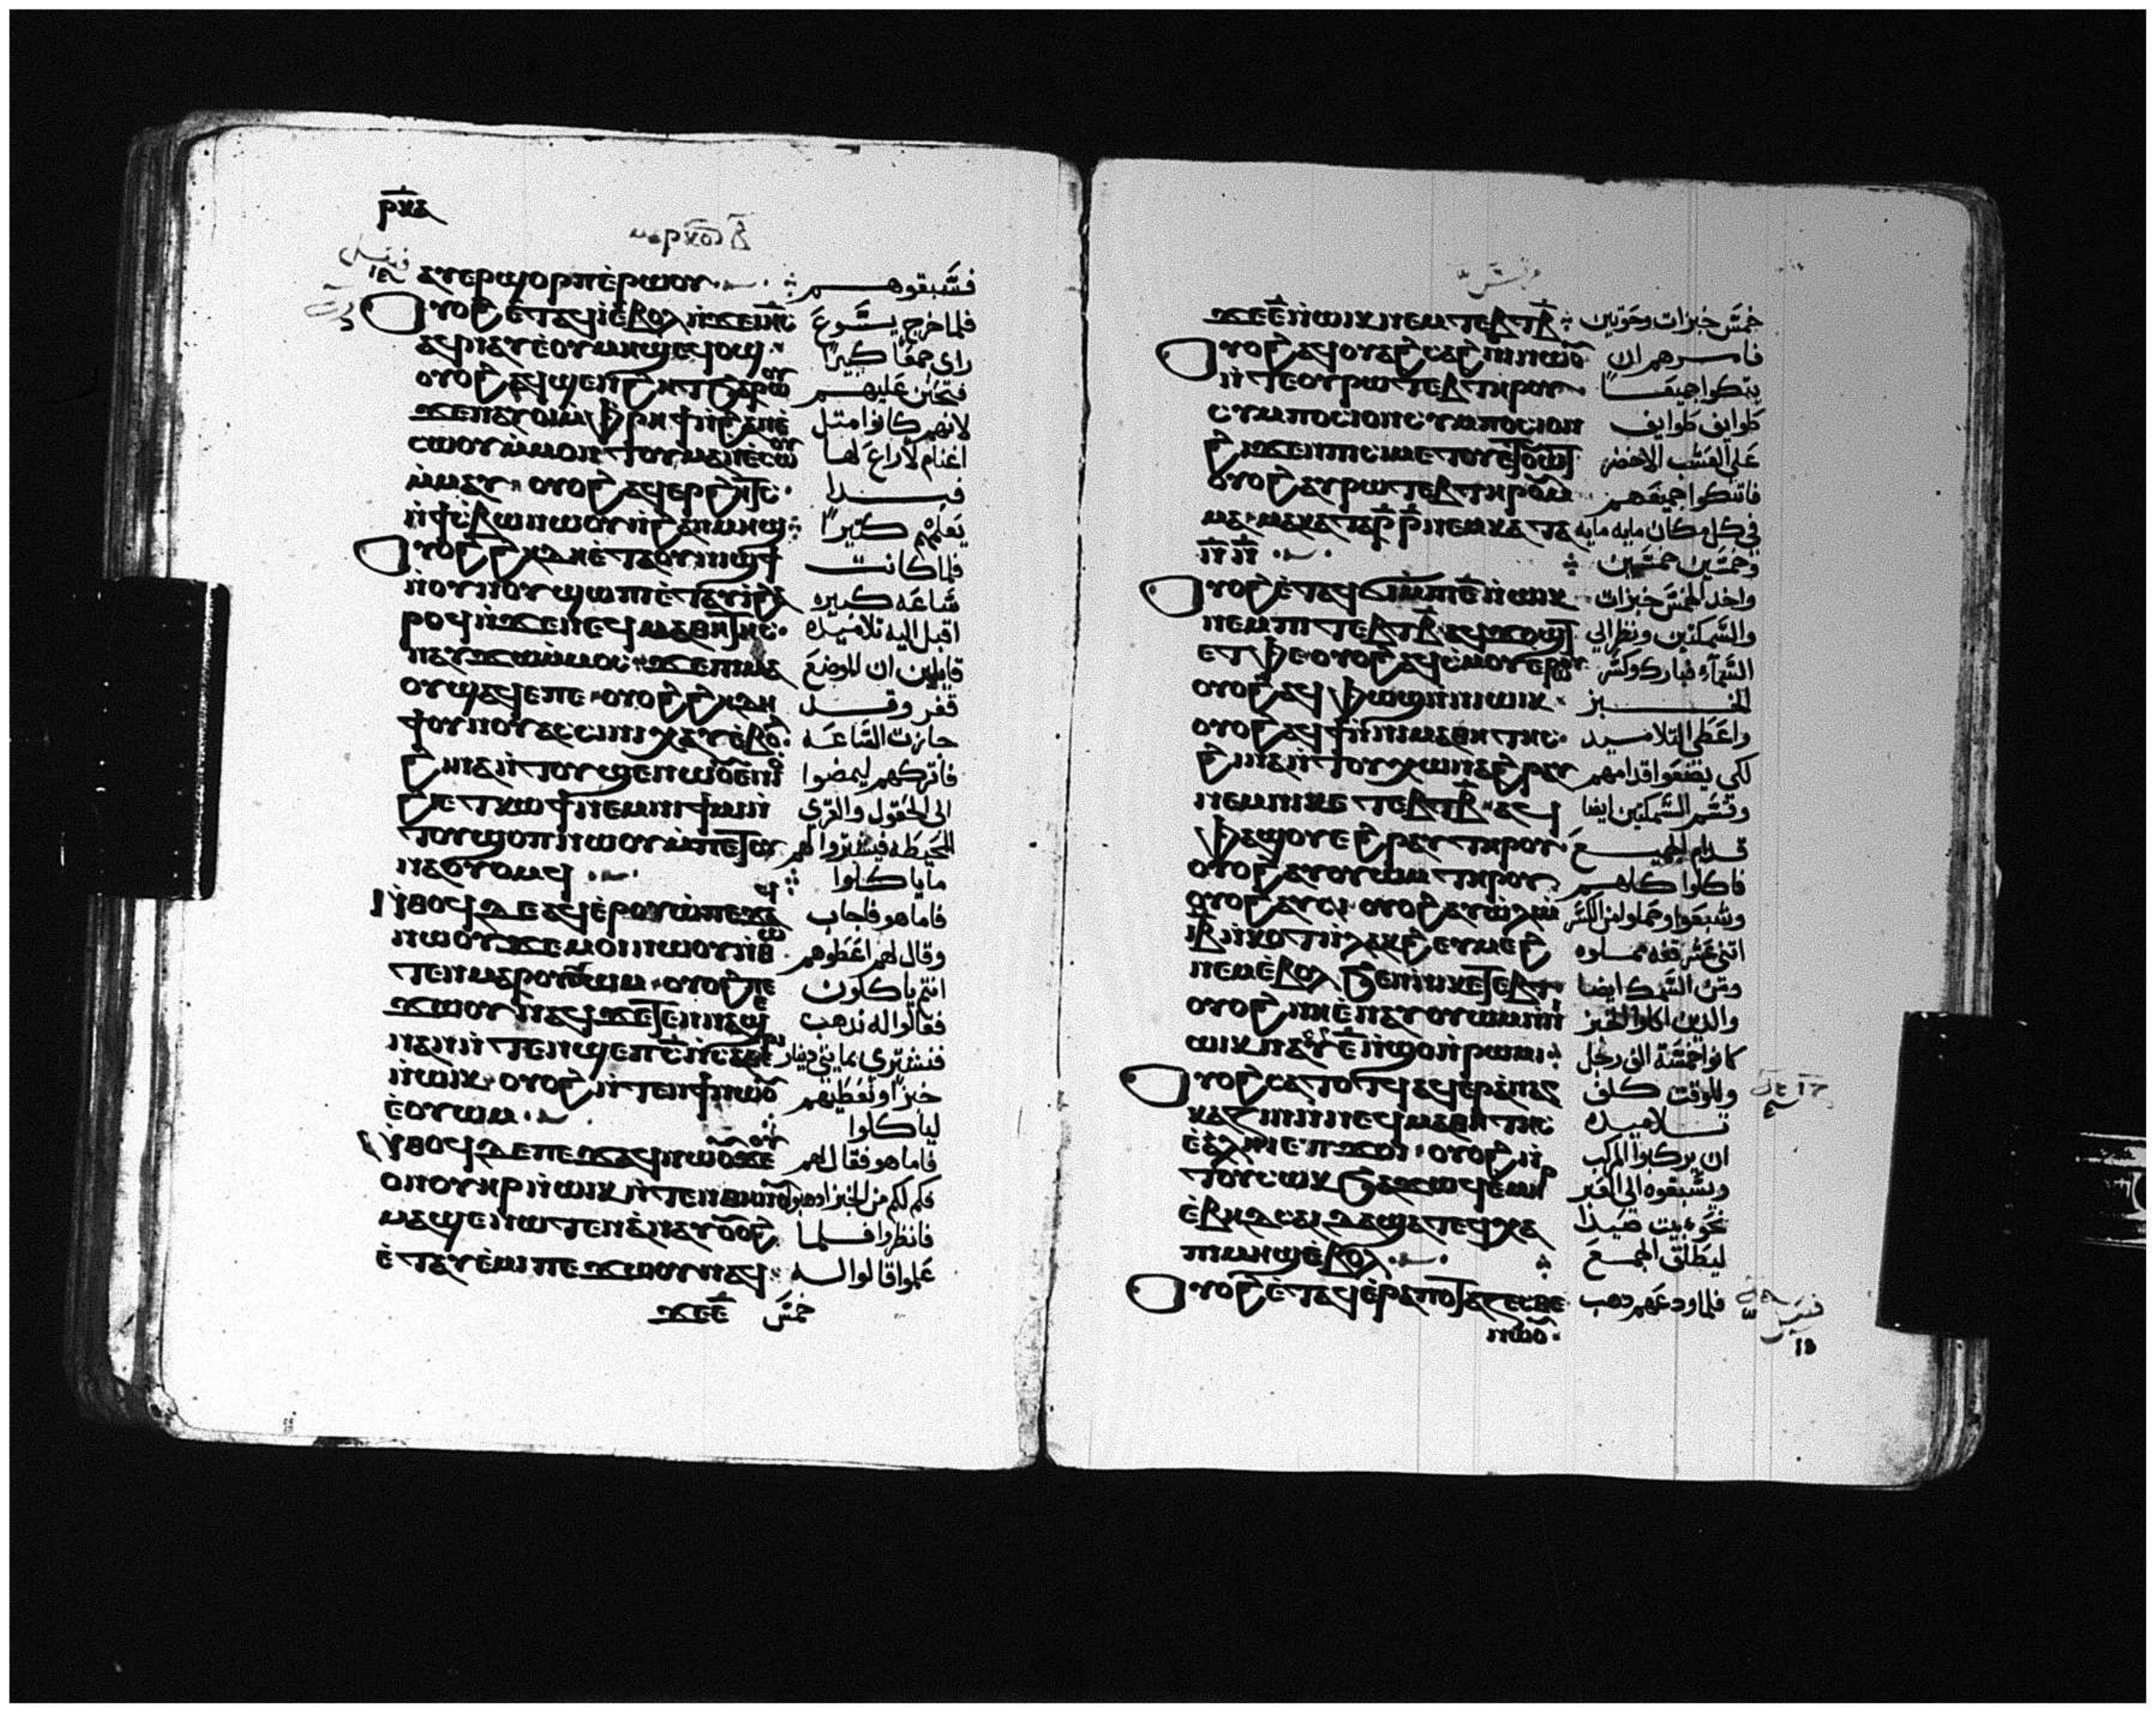 ⲣⲝⲁ
ⲙⲁⲣⲕⲟⲥ ⲃ̄
ⲁⲩⲉⲣϣⲟⲣⲡ ⲉ̀ⲣⲱⲟⲩ فسبقوهم
ⲟⲩⲟϩ ⲉ̀ⲧⲁϥⲓ̀ ⲉ̀ⲃⲟⲗ ⲛ̀ϫⲉ ⲓⲏⲥ فلما خرج يسوع
ⲁϥⲛⲁⲩ ⲉ̀ⲟⲩⲙⲏϣ ⲉϥⲟϣ راى جمعًا كبيرًا
ⲟⲩⲟϩ ⲁϥϣⲉⲛϩⲏⲧ ϧⲁⲣⲱⲟⲩ فتحنن عليهم
ϫⲉ ⲛⲁⲩⲟⲓ ⲙ̀ⲫⲣⲏϯ ⲛ̀ϩⲁⲛⲉ̀ لانهم كانوا مثل
ⲥⲱⲟⲩ ⲙ̀ⲙⲟⲛ ⲧⲟⲩⲙⲁⲛⲉ̀ⲥⲱⲟⲩ اغنام لا راع لها
ⲙ̀ⲙⲁⲩ ⲟⲩⲟϩ ⲁϥⲉⲣϩⲏⲧⲥ فبدا
ⲛ̀ϯⲥ̀ⲃⲱ ⲛⲱⲟⲩ ⲛ̀ϩⲁⲛⲙⲏϣ يعلمهم كثيرًا
ⲟⲩⲟϩ ϩⲏⲇⲏ ⲉ̀ⲧⲁ ⲟⲩⲛⲓϣϯ فلما كانت
ⲛ̀ⲟⲩⲛⲟⲩ ϣⲱⲡⲓ ⲉ̀ⲧⲁⲩⲓ̀ ϩⲁ ساعه كبيره
ⲣⲟϥ ⲛ̀ϫⲉ ⲛⲉϥⲙⲁⲑⲏⲧⲏⲥ اقبل اليه تلاميده
ⲛⲁⲩϫⲱ ⲙ̀ⲙⲟⲥ ϫⲉ ⲡⲓⲙⲁ قايلين ان الموضع
ⲟⲩϣⲁϥⲉ ⲡⲉ ⲟⲩⲟϩ ϩⲏⲇⲏ قفر وقد
ϯⲟⲩⲛⲟⲩ ⲁⲥⲥⲓⲛⲓ ⲭⲁⲩ ⲉ̀ⲃⲟⲗ جازت الساعه
ϩⲓⲛⲁ ⲛ̀ⲧⲟⲩϣⲉⲛⲱⲟⲩ ⲉ̀ⲛⲓ فاتركهم ليمضوا
ϩⲓⲉⲧⲕⲱϯ ⲛⲉⲙ ⲛⲓϯⲙⲓ ⲛ̀ الى الحقول والقرى
ⲧⲟⲩϣⲟⲡ ⲛⲱⲟⲩ ⲙ̀ⲡⲉⲧⲟⲩ المحيطه فيشتروا لهم
ⲛⲁⲟⲩⲟⲙϥ ما ياكلوا
ⲛ̀ⲑⲟϥ ⲇⲉ ⲁϥⲉ̀ⲣⲟⲩⲱ̀ ⲡⲉϫⲁϥ فاما هو فاجاب
ⲛⲱⲟⲩ ϫⲉ ⲙⲟⲓ ⲛⲱⲟⲩ ⲛ̀ⲑⲱ وقال لهم اعطوهم
ⲧⲉⲛ ⲙⲁⲣⲟⲩⲟⲩⲱⲙ ⲟⲩⲟϩ ⲡⲉ انتم ياكلون
ϫⲱⲟⲩ ⲛⲁϥ ϫⲉ ⲧⲉⲛⲛⲁϣⲉ فقالوا له نذهب
ⲛⲁⲛ ⲛ̀ⲧⲉⲛϣⲉⲡ ⲥ̄ ⲛ̀ⲥⲁⲑⲉⲣⲓ فنشتري بمايتي دينار
ⲛ̀ⲱⲓⲕ ⲟⲩⲟϩ ⲛ̀ⲧⲉⲛϯ ⲛⲱⲟⲩ خبزًا ونعطيهم
ⲉ̀ⲟⲩⲱⲙ لياكلوا
ⲛ̀ⲑⲟϥ ⲇⲉ ⲡⲉϫⲁϥ ⲛⲱⲟⲩ ϫⲉ ⲟⲩ فاما هو فقال لهم
ⲟⲛ ⲟⲩⲏⲣ ⲛ̀ⲱⲓⲕ ⲛ̀ⲧⲉⲛⲑⲏⲛⲟⲩ فكم لكم من الخبز ادهبوا
ⲙⲁϣⲉⲛⲱⲧⲉⲛ ⲁ̀ⲛⲁⲩ ⲟⲩⲟϩ فانظروا فلما
ⲉ̀ⲧⲁⲩⲉ̀ⲙⲓ ⲡⲉϫⲱⲟⲩ ⲛⲁϥ علموا قالوا له
ϫⲉ ⲉ̄ خمس
ϫⲉ ⲉ̄ ⲛ̀ⲱⲓⲕ ⲛⲉⲙ ⲧⲉⲃⲧ ⲃ̄ خمس خبزات وحوتين
ⲟⲩⲟϩ ⲁϥⲟⲩⲁϩⲥⲁϩⲛⲓ ⲛⲱⲟⲩ فامرهم ان
ⲛ̀ⲧⲉ ⲟⲩⲣⲱⲧⲉⲃ ⲧⲏⲣⲟⲩ يتكوا جميعًا
ⲥⲩⲙⲡⲟⲥⲓⲟⲛ ⲥⲩⲙⲡⲟⲥⲓⲟⲛ طوايف طوايف
ϩⲓϫⲉⲛ ⲡⲓⲥⲓⲙ ⲉⲧⲟⲩⲉⲧⲟⲩⲱⲧ على العشب الاخضر
ⲟⲩⲟϩ ⲁⲩⲣⲱⲧⲉⲃ ⲧⲏⲣⲟⲩ ⲙ̀ فاتكوا جميعهم
ⲙⲁ ⲙⲁ ⲕⲁⲧⲁ ⲣ̄ ⲣ̄ ⲛⲉⲙ ⲕⲁⲧⲁ في كل مكان مايه مايه
ⲛ̄ ⲛ̄ وخمسين خمسين
ⲟⲩⲟϩ ⲉ̀ⲧⲁϥϭⲓ ⲙ̀ⲡⲓ ⲉ̄ ⲛ̀ⲱⲓⲕ واخد الخمس خبزات
ⲛⲉⲙ ⲡⲓⲧⲉⲃⲧ ⲃ̄ ⲁϥϫⲟⲩϣⲧ والسمكتين ونظر الى
ⲉ̀ⲧⲫⲉ ⲟⲩⲟϩ ⲁϥⲥ̀ⲙⲟⲩ ⲉ̀ⲣⲱⲟⲩ السماء فبارك وكسر
ⲟⲩⲟϩ ⲁϥⲫⲱϣ ⲛ̀ⲛⲓⲱⲓⲕ الخبز
ⲟⲩⲟϩ ⲁϥϯ ⲛ̀ⲛⲓⲙⲁⲑⲏⲧⲏⲥ واعطى التلاميد
ϩⲓⲛⲁ ⲛ̀ⲧⲟⲩⲭⲱ ⲛⲁϩⲣⲁⲩ لكي يضعوا قدامهم
ⲛⲉⲙ ⲡⲓⲕⲉⲧⲉⲃⲧ ⲃ̄ ⲁϥ وقسم السمكتين ايضا
ⲫⲁϣⲟⲩ ⲉϩⲣⲁⲩ ⲧⲏⲣⲟⲩ قدام الجميع
ⲟⲩⲟϩ ⲁⲩⲟⲩⲱⲙ ⲧⲏⲣⲟⲩ فاكلوا كلهم
ⲟⲩⲟϩ ⲁⲩⲥⲓ ⲟⲩⲟϩ ⲁⲩⲱ̀ⲗⲓ ⲛ̀ وشبعوا وحملوا من الكسر
ⲓⲃ̄ ⲛ̀ⲕⲟⲧ ⲛ̀ⲗⲁⲕϩ ⲉⲩⲙⲉϩ اثني عشر قفه مملوه
ⲛⲉⲙ ⲉ̀ⲃⲟⲗ ϧⲉⲛ ⲛⲓⲕⲉⲧⲉⲃⲧ ومن السمك ايضا
ⲟⲩⲟϩ ⲛⲏ ⲉ̀ⲛⲁⲩⲟⲩⲱⲙ والدين اكلوا الخبز
ⲱⲓⲕ ⲛⲁⲩ ⲉ̄ ⲛ̀ϣⲟ ⲛ̀ⲣⲱⲙⲓ كانوا خمسة الف رجل
ⲟⲩⲟϩ ⲥⲁⲧⲟⲧϥ ⲁϥⲉ̀ⲣⲁ̀ⲛⲁⲅ وللوقت كلف
ⲕⲁⲍⲓⲛ ⲛ̀ⲛⲉϥⲙⲁⲑⲏⲧⲏⲥ تلاميده
ⲉ̀ⲁ̀ⲗⲏⲓ ⲉ̀ⲡϫⲟⲓ ⲟⲩⲟϩ ⲛ̀ ان يركبوا المركب
ⲧⲟⲩⲥⲱⲕ ϧⲁϫⲱϥ ⲉ̀ⲙⲏⲣ ويسبقوه الى العبر
ⲉ̀ⲃⲏⲇⲥⲁⲓⲇⲁ ϣⲁⲧⲉϥⲭⲁ نحو بيت صيدا
ⲡⲓⲙⲏϣ ⲉ̀ⲃⲟⲗ ليطلق الجمع
ⲟⲩⲟϩ ⲉ̀ⲧⲁϥⲉ̀ⲣⲁⲡⲟⲧⲁⲍⲉⲥⲑⲉ فلما ودعهم دهب
ⲛⲱⲟⲩ